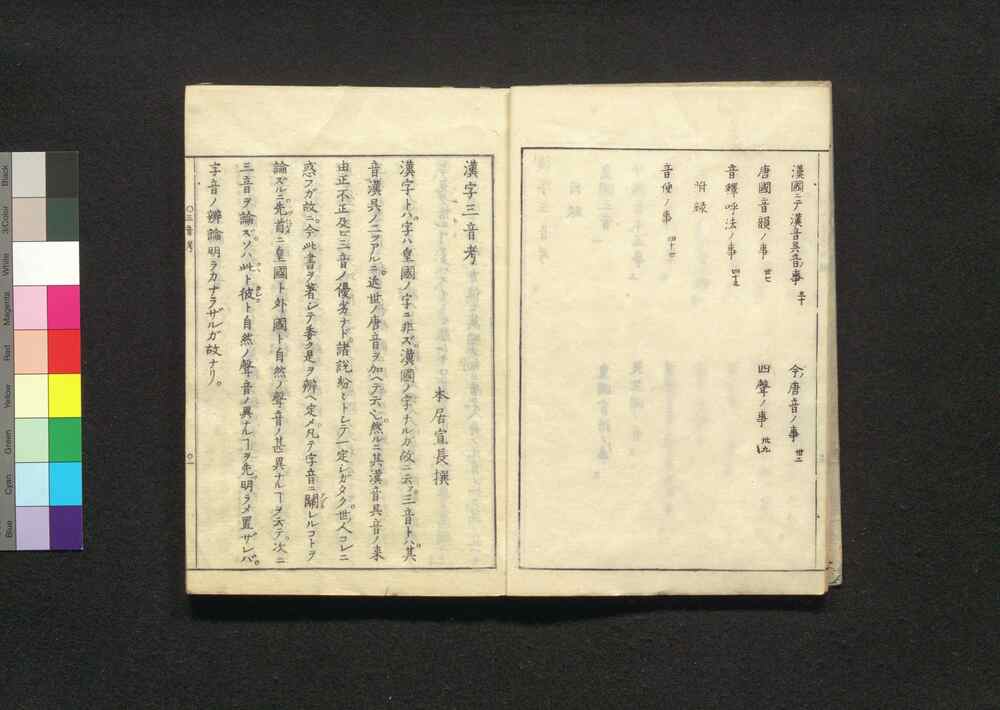 漢國ニテ漢音呉音ノ事 三十
今ノ唐音ノ事 卅二
唐國音韻ノ事 卅七
四聲ノ事 卅九
音釋呼法ノ事 四十五
附録
音便ノ事 四十七
漢字三音考
本居宣長撰
漢字トハ字ハ皇國ノ字ニ非ズ漢國ノ字ナルガ故ニ云フ三音トハ其
音漢呉ノ二ツアルニ近世ノ唐音ヲ加ヘテ云也然ルニ其漢音呉音ノ来
由正不正及ビ三音ノ優劣ナド諸説紛々トシテ一定シガタク世人コレニ
惑フガ故ニ今此書ヲ著シテ委ク是ヲ辨ヘ定メ凡テ字音ニ關レルコトヲ
論ズルニ先首ニ皇國ト外國ト自然ノ聲音ノ甚異ナルヿヲ云テ次ニ
三音ヲ論ズソハ此ト彼ト自然ノ聲音ノ異ナルヿヲ先明ラメ置ザレバ。
字音ノ辨論明ラカナラザルガ故ナリ。
〇三音考
〇一
Black
3/Color
White
Magenta
Red
Yellow
Green
Cyan
Blue